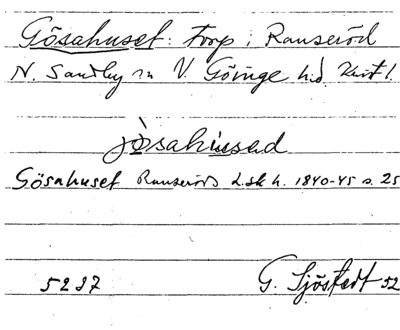 Gösahuset: torp i Ranseröd
N. Sandby sn V. Göinge hd Krist l.
jòsahùsəd
Gösahuset Ranseröds l.sk h. 1840-45 s. 25
5237 G. Sjöstedt 52